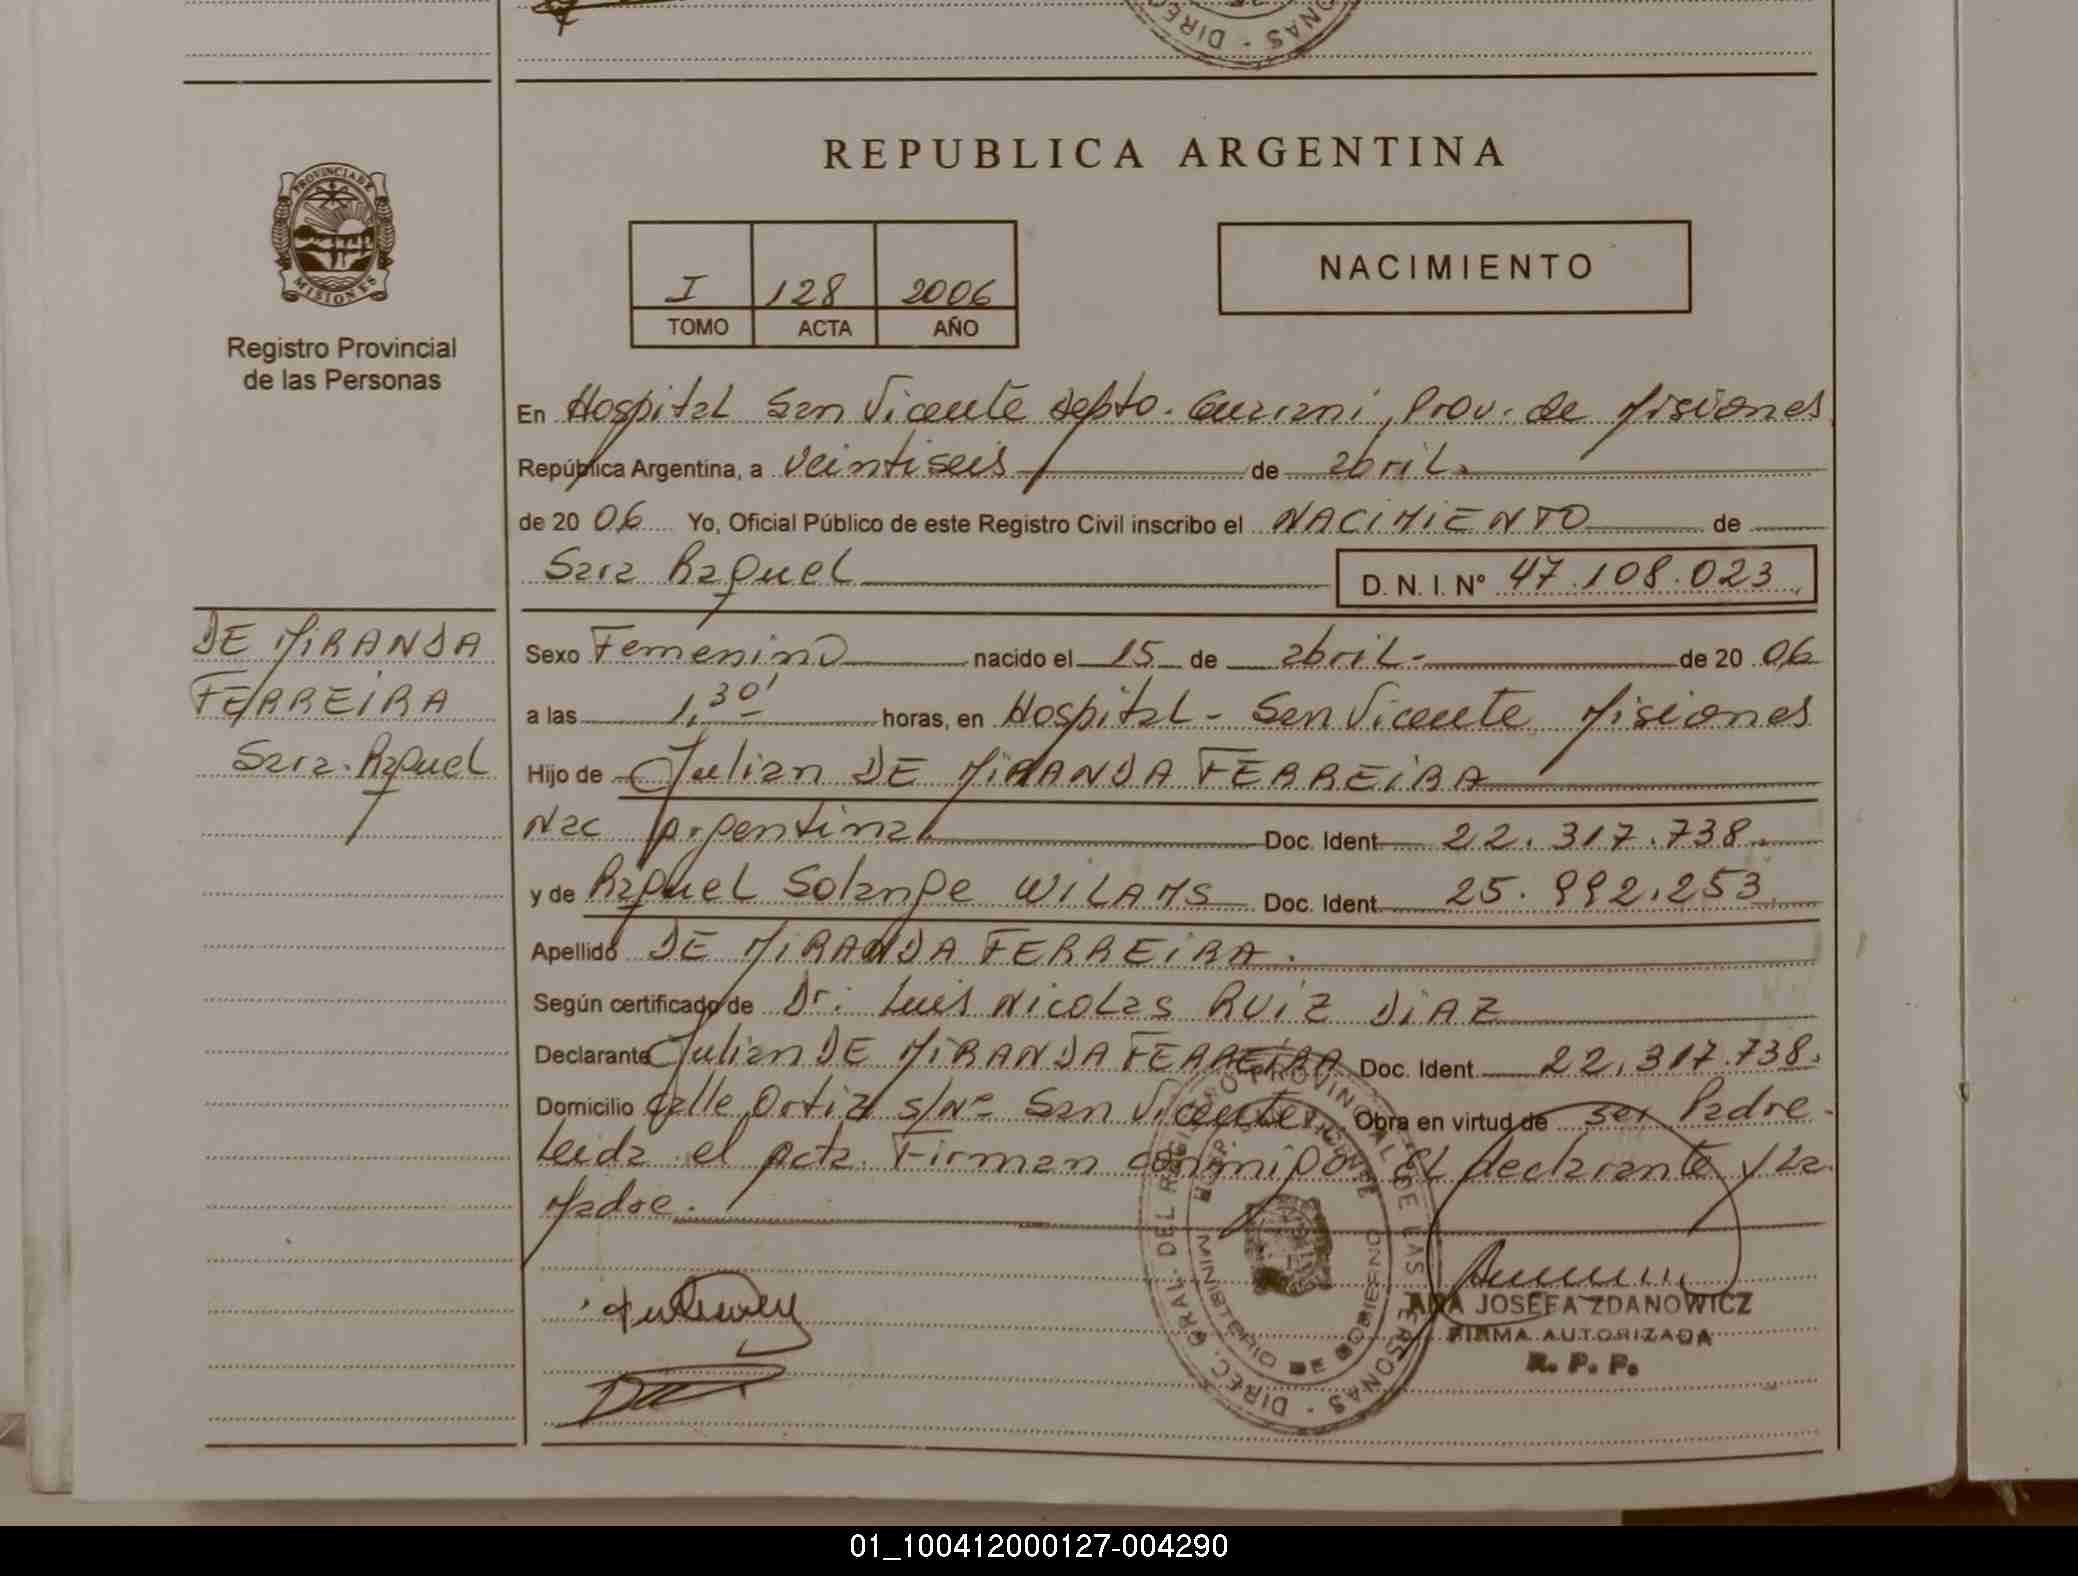 REPUBLICA ARGENTINA
PROVINCIA DE
MISIONES
Registro Provincial
de las Personas
I 128 2006
TOMO ACTA AÑO
NACIMIENTO
En Hospital San Vicente depto. Guarani, Prov. de Misiones
República Argentina, a veintiseis de abril
de 20 06 Yo, Oficial Público de este Registro Civil inscribo el NACIMIENTO de
Sara Raquel
D. N. I. Nº 47.108.023
DE MIRANDA
FERREIRA
Sara Raquel
Sexo Femenino nacido el 15 de abril de 20 06
a las 1,30' horas, en Hospital - San Vicente Misiones
Hijo de Julian DE MIRANDA FERREIRA
Nac Argentina Doc. Ident 22.317.738.
y de Raquel Solange WILAMS Doc. Ident 25.992.253
Apellido DE MIRANDA FERREIRA.
Según certificado de Dr. Luis Nicolas RUIZ DIAZ
Declarante Julian DE MIRANDA FERREIRA Doc. Ident 22.317.738.
Domicilio Calle Ortiz s/Nº San Vicente Obra en virtud de ser Padre.
Leida el acta Firman conmigo El declarante y La
Madre.
DIREC. GRAL. DEL REGISTRO PROVINCIAL DE LAS PERSONAS
HOSP. SAN VICENTE
MINISTERIO DE GOBIERNO
ANA JOSEFA ZDANOWICZ
FIRMA AUTORIZADA
R. P. P.
01_100412000127-004290